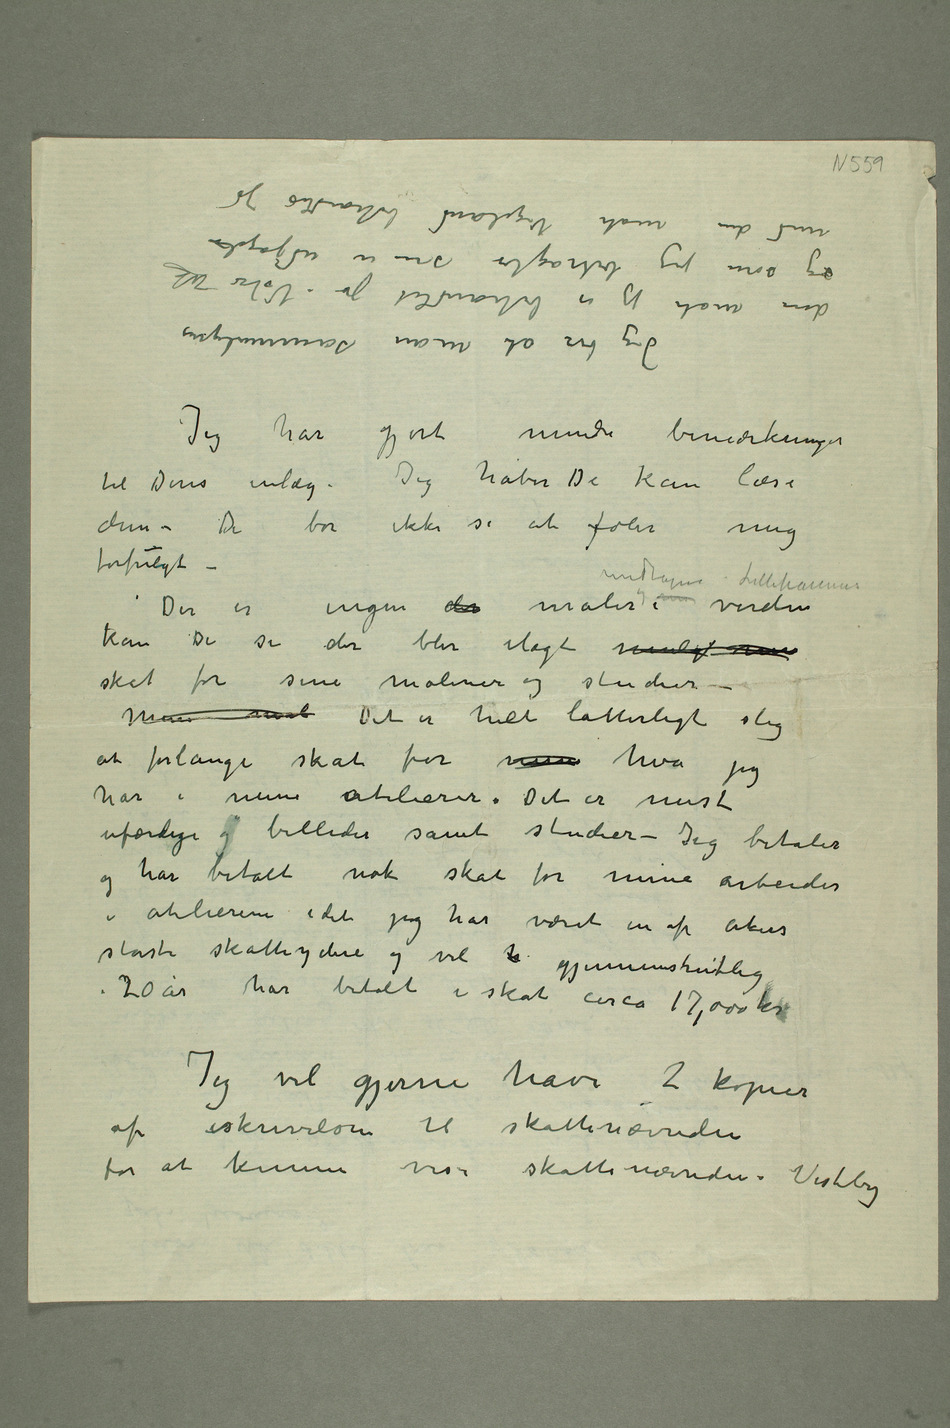 N 559
Jeg ber at man sammenligner
den måte jeg er behandlet på
og som jeg betragter som en
med den måte Vigeland behandles på
Jeg har gjort mindre bemærkninger
til Deres inlæg. Jeg håber De kan læse
dem – De bør ikke si at føler mig
forfulgt –
Der er ingen der maler i verden
undtagen Lillehammer
kan De si der blir ilagt
skat for sine malerier og studier –
Mine mal Det er helt latterligt slig
at forlange skat for mine hva jeg
har i mine atelierer. Det er mest
uferdige og billeder samt studier – Jeg betaler
og har betalt nok skat for mine arbeider
i atelierene idet jeg har været en af Akers
største skatteydere og vel h gjennemsnitlig
i 20 år har betalt i skat circa 17,000 kr
Jeg vil gjerne have 2 kopier
af skrivelsen til skattenævnden
for at kunne vise skattenævnden i Vestby